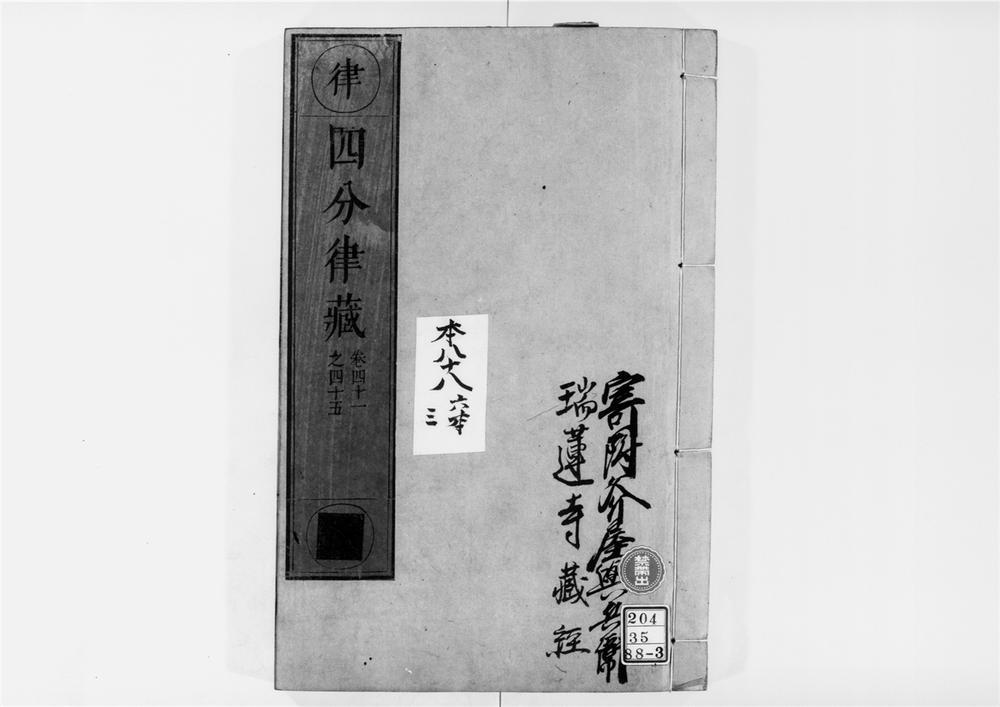 寄附屋與兵衛
瑞蓮寺藏經
禁帶出
204
35
88-3
本八十八
三
律
四分律藏
卷四十一
之四十五